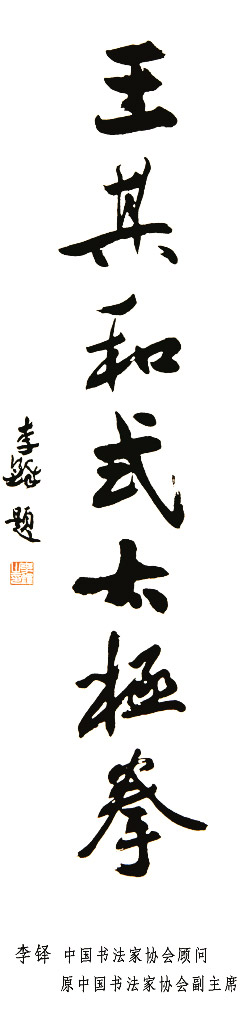 王其和式太極拳
李鐸題
李铎 中国书法家协会顾问
原中国书法家协会副主席